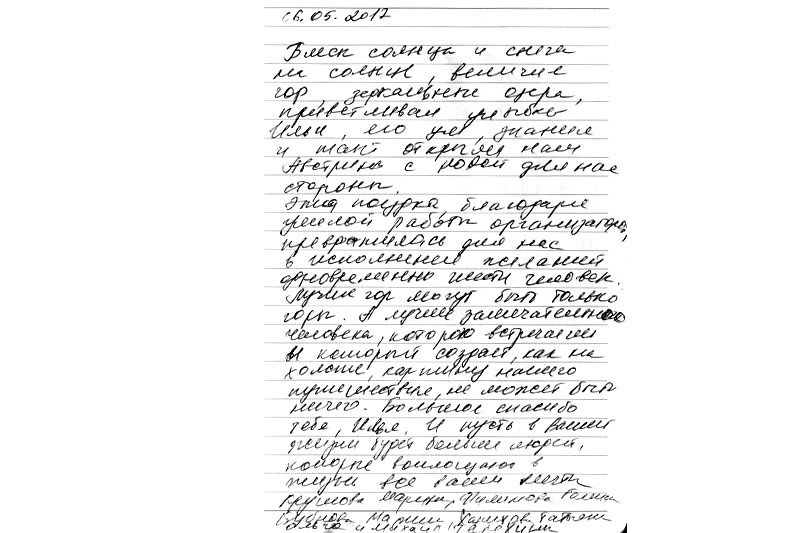 26.05.2012
Блеск солнца и снега
на солнце, величие
гор, зеркальные озера,
приветливая улыбка
Ильи, его ум, знания
и такт открыли нам
Австрию с новой для нас
стороны.
Эта поездка, благодаря
умелой работы организаторов,
превратилась для нас
в исполнение желаний
одновременно шести человек.
Лучше гор могут быть только
горы. А лучше замечательного
человека, которого встречаем
и который создает, как на
холсте, картину нашего
путешествие, не может быть
ничего. Большое спасибо
тебе, Илья. И пусть в вашей
жизни будет больше людей,
которые воплощают в
жизни все ваши мечты
Круглова Марина, Филимонова Галина
Марина Татьяна
и Михаил